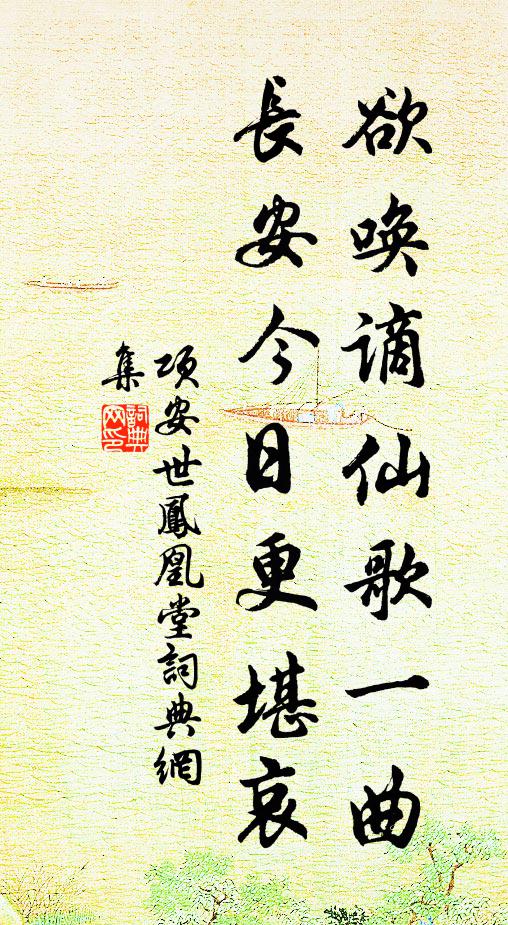 欲唤謫仙歌一曲
長安今日更堪哀
項安世鳳凰堂詞典網
集
詞典
网印